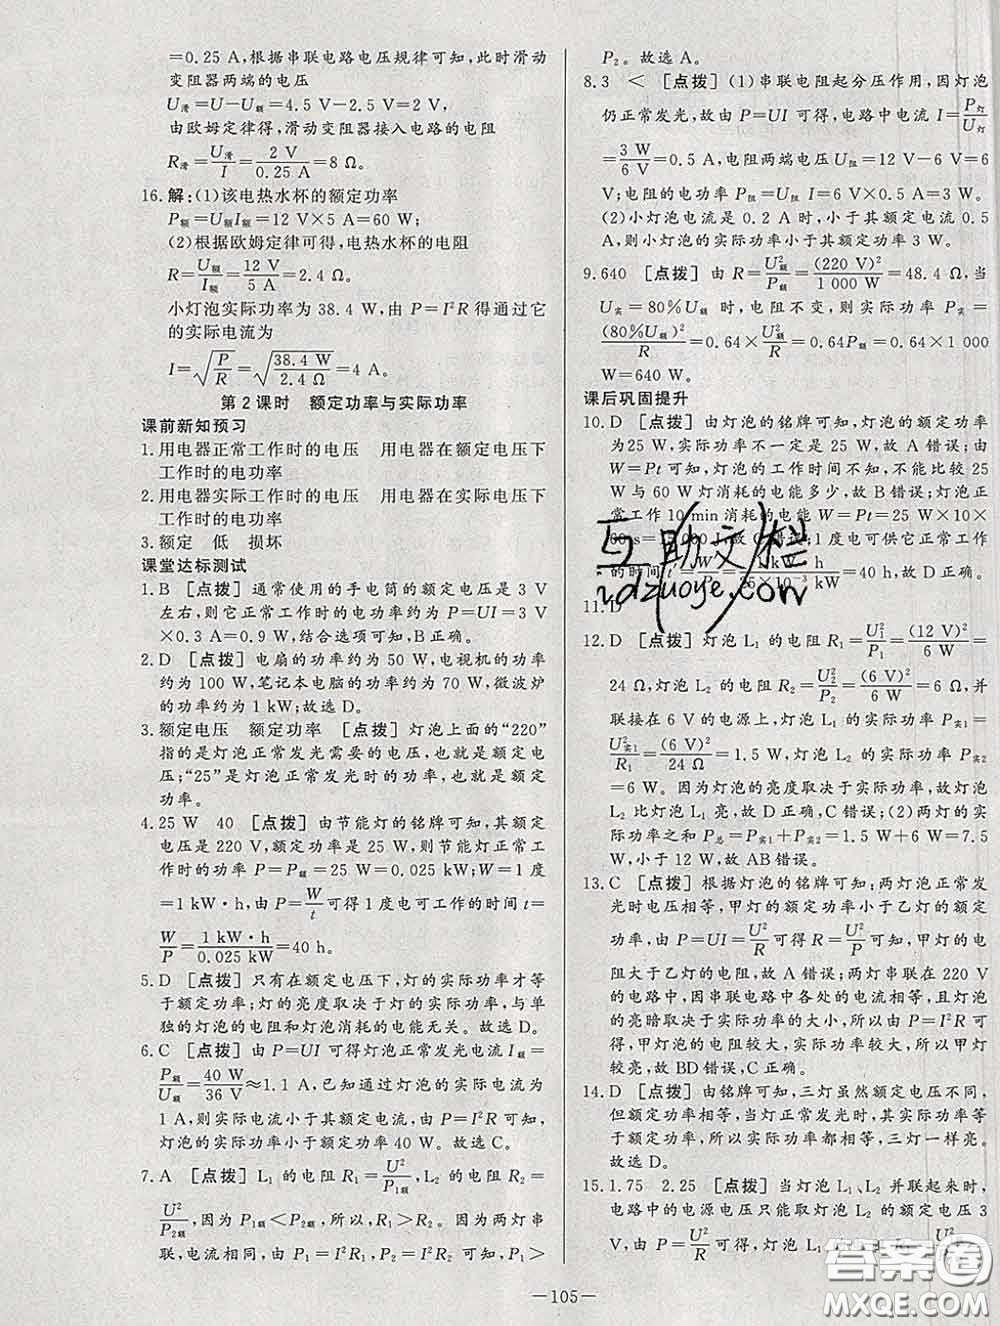 =0.25 A,根据串联电路电压规律可知,此时滑动
变阻器两端的电压
U滑=U-U额=4.5 V-2.5 V=2 V,
由欧姆定律得,滑动变阻器接入电路的电阻
R滑=U滑/I=2 V/0.25 A=8 Ω。
16.解:(1)该电热水杯的额定功率
P额=U额I额=12 V×5 A=60 W;
(2)根据欧姆定律可得,电热水杯的电阻
R=U额/I额=12 V/5 A=2.4 Ω。
小灯泡实际功率为38.4 W,由P=I²R得通过它
的实际电流为
I=√(P/R)=√(38.4 W/2.4 Ω)=4 A。
第2课时 额定功率与实际功率
课前新知预习
1.用电器正常工作时的电压 用电器在额定电压下
工作时的电功率
2.用电器实际工作时的电压 用电器在实际电压下
工作时的电功率
3.额定 低 损坏
课堂达标测试
1.B [点拨] 通常使用的手电筒的额定电压是3 V
左右,则它正常工作时的电功率约为P=UI=3 V
×0.3 A=0.9 W,结合选项可知,B正确。
2.D [点拨] 电扇的功率约为50 W,电视机的功率
约为100 W,笔记本电脑的功率约为70 W,微波炉
的功率约为1 kW;故选D。
3.额定电压 额定功率 [点拨] 灯泡上面的“220”
指的是灯泡正常发光需要的电压,也就是额定电
压;“25”是灯泡正常发光时的功率,也就是额定
功率。
4.25 W 40 [点拨] 由节能灯的铭牌可知,其额定
电压是220 V,额定功率是25 W,则节能灯正常工
作时的功率P=P额=25 W=0.025 kW;W=1度
=1 kW·h,由P=W/t可得1度电可工作的时间t=
W/P=1 kW·h/0.025 kW=40 h。
5.D [点拨] 只有在额定电压下,灯的实际功率才等
于额定功率;灯的亮度取决于灯的实际功率,与单
独的灯泡的电阻和灯泡消耗的电能无关。故选D。
6.C [点拨] 由P=UI可得灯泡正常发光电流I额=
P额/U额=40 W/36 V≈1.1 A,已知通过灯泡的实际电流为
1 A,则实际电流小于其额定电流,由P=I²R可知,
灯泡的实际功率小于额定功率40 W。故选C。
7.A [点拨] L₁的电阻R₁=U²/P₁额,L₂的电阻R₂=
U²/P₂额,因为P₁额<P₂额,所以,R₁>R₂。又两灯串
联,电流相同,由P₁=I²R₁,P₂=I²R₂可知,P₁>
P₂。故选A。
8.3 < [点拨] (1)串联电阻起分压作用,因灯泡
仍正常发光,故由P=UI可得,电路中电流I=P灯/U灯
=3 W/6 V=0.5 A,电阻两端电压U阻=12 V-6 V=6
V;电阻的电功率P阻=U阻I=6 V×0.5 A=3 W。
(2)小灯泡电流是0.2 A时,小于其额定电流0.5
A,则小灯泡的实际功率小于其额定功率3 W。
9.640 [点拨] 由R=U额²/P额=(220 V)²/1 000 W=48.4 Ω,当
U实=80%U额时,电阻不变,则实际功率P实=
(80%U额)²/R=0.64×U额²/R=0.64P额=0.64×1 000
W=640 W。
课后巩固提升
10.D [点拨] 由灯泡的铭牌可知,灯泡的额定功率
为25 W,实际功率不一定是25 W。故A错误;由
W=Pt可知,灯泡的工作时间不知,不能比较25
W与60 W灯消耗的电能多少,故B错误;灯泡正
常工作10 min消耗的电能W=Pt=25 W×10×
60 s=15 000 J,故C错误;1度电可供它正常工作
的时间t=W/P=1 kW·h/25×10⁻³ kW=40 h,故D正确。
11.D
12.D [点拨] 灯泡L₁的电阻R₁=U₁²/P₁=(12 V)²/6 W=
24 Ω,灯泡L₂的电阻R₂=U₂²/P₂=(6 V)²/6 W=6 Ω,并
联接在6 V的电源上,灯泡L₁的实际功率P实1=
U实1²/R₁=(6 V)²/24 Ω=1.5 W,灯泡L₂的实际功率P实2
=6 W。因为灯泡的亮度取决于实际功率,故灯泡
L₂比灯泡L₁亮,故D正确,C错误;(2)两灯的实
际功率之和P总=P实1+P实2=1.5 W+6 W=7.5
W,小于12 W,故AB错误。
13.C [点拨] 根据灯泡的铭牌可知;两灯泡正常发
光时电压相等,甲灯的额定功率小于乙灯的额定
功率,由P=UI=U²/R可得R=U²/P可知,甲灯的电
阻大于乙灯的电阻,故A错误;两灯串联在220 V
的电路中,因串联电路中各处的电流相等,且灯泡
的亮暗取决于实际功率的大小,所以由P=I²R可
得,甲灯泡的电阻较大,实际功率较大,所以甲灯
较亮,故BD错误,C正确。
14.D [点拨] 由铭牌可知,三灯虽然额定电压不同,
但额定功率相等,当灯正常发光时,其实际功率等
于额定功率,所以实际功率都相等,三灯一样亮。
故选D。
15.1.75 2.25 [点拨] 当灯泡L₁、L₂并联起来时,
电路中的电源电压只能取灯泡L₂的额定电压3
V,由P=U²/R可得,灯泡L₁
-105-
互助文栏
idzuoye.com
答案圈
MXQE.COM